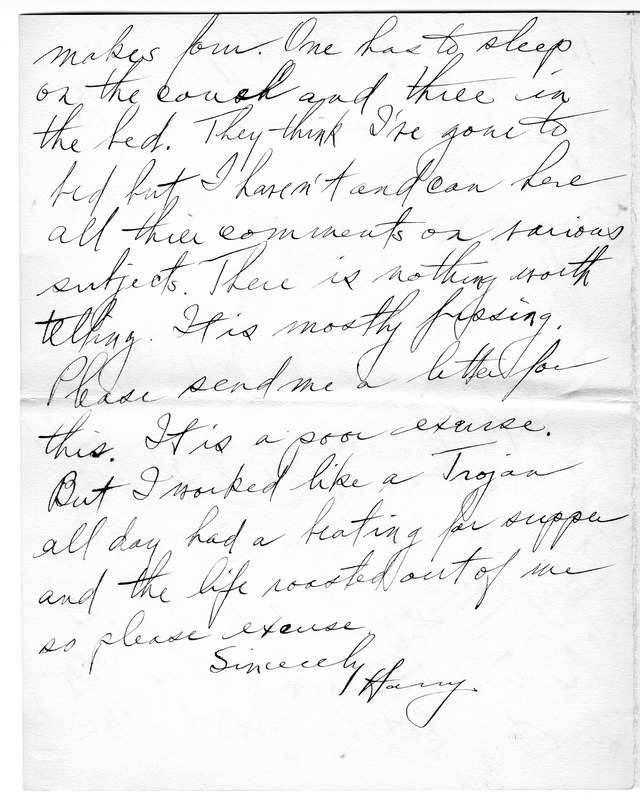 makes four. One has to sleep
on the couch and three in
the bed. They think I've gone to
bed but I haven't and can here
all thier comments on various
subjects. There is nothing worth
telling. It is mostly fussing.
Please send me a letter for
this. It is a poor excuse.
But I worked like a Trojan
all day had a beating for supper
and the life roasted out of me
so please excuse
Sincerely
Harry.